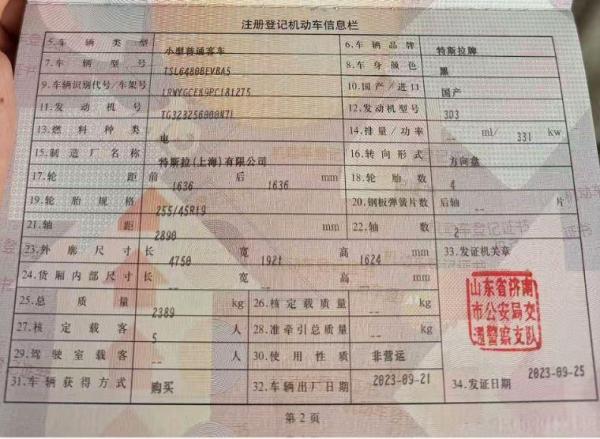 注册登记机动车信息栏
5.车辆类型 小型普通客车 6.车辆品牌 特斯拉牌
7.车辆型号 TSL6480BEVBA5 8.车身颜色 黑
9.车辆识别代号/车架号 LRWYGCEK9PC181275 10.国产/进口 国产
11.发动机号 TG323256000N7L 12.发动机型号 3D3
13.燃料种类 电 14.排量/功率 -- ml/ 331 kw
15.制造厂名称 特斯拉(上海)有限公司 16.转向形式 方向盘
17.轮距 前 1636 后 1636 mm 18.轮胎数 4
19.轮胎规格 255/45R19 20.钢板弹簧片数 后轴 -- 片
21.轴距 2890 mm 22.轴数 2
23.外廓尺寸 长 4750 宽 1921 高 1624 mm 33.发证机关章
24.货厢内部尺寸 长 -- 宽 -- 高 -- mm
山东省济南
市公安局交
通警察支队
25.总质量 2389 kg 26.核定载质量 -- kg
27.核定载客 5 人 28.准牵引总质量 -- kg
29.驾驶室载客 -- 人 30.使用性质 非营运
31.车辆获得方式 购买 32.车辆出厂日期 2023-09-21 34.发证日期 2023-09-25
第2页